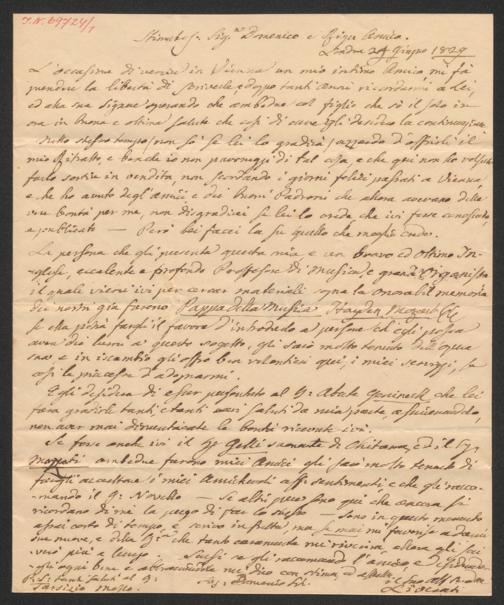 I.N. 69724/1
Stimat. Sig. Domenico e Amico.
Londra 24 Giugno 1829
L'occasione di venire in Vienna un mio intimo Amico mi fà
prendere la libertà di scriverle, e dopo tanti anni ricordarmi a lei,
ed alla sua Signora sperando che ambedue col figlio che vi è solo
in buona e ottima salute che così di cuore egli desidero la continuazione
nello stesso tempo non sò se lei lo gradirà, azzardo d'offrirli il
mio Ritratto e benche io non di tal cosa, e che qui non ho voluto
farlo sortire in vendita, non scordando i giorni felici passati a Vienna,
e che ho avuto degl'amici e dei Buoni Padroni che allora avevano della
vera bontà per me, non disgradirei se lei lo creda che ivi fosse conosciuto,
e publicato — Però lei facci la su quello che meglio crede.
La persona che gli presenta questa mia, è un bravo ed ottimo In-
glese, eccelente e profondo Professore di Musica, e grande Organista
il quale viene ivi per cercar materiali sopra la morabil memoria
dei nostri già furono Pappa della Musica Hayden Mozart
se ella potrà fargli il favore d'introdurlo a persone ed egli possa
aver dei lumi a questo sogetto, gli sarò molto tenuto
ma e in iscambio gli offro ben volontieri qui, i miei servizj, se
così la piacesse d'adoprarmi.
Egli desidera di esser presentato al Sr. Abate Gelineck, che lei
farà grazioli tanti e tanti cari saluti da mia parte, assicurandolo,
non aver mai dimenticate le bontà ricevute ivi.
Se fosse anche ivi il Sr. Galli sonante di Chitarra, ed il Sr.
ambedue furono miei Amici gli sarò molto tenuto di
fargli accettare i miei Amichevoli sentimenti e che gli racco-
mando il Sr. Novello — Se altri pur sono qui che ancora si
ricordano di me la prego di far lo stesso — Sono in questo momento
assai corto di tempo, e scrivo in fretta, ma se mai mi favorisse a darmi
sue nuove, e della Sra. che tanto caramente mi riverirà allora gli scri-
verò più a lungo. gli raccomando l'amico, e desiderando
gli ogni bene e abbracciandolo mi dico con stima ed affetto
P.S. tanti saluti al Sr.
Sig. Domenico
il suo aff. Amico